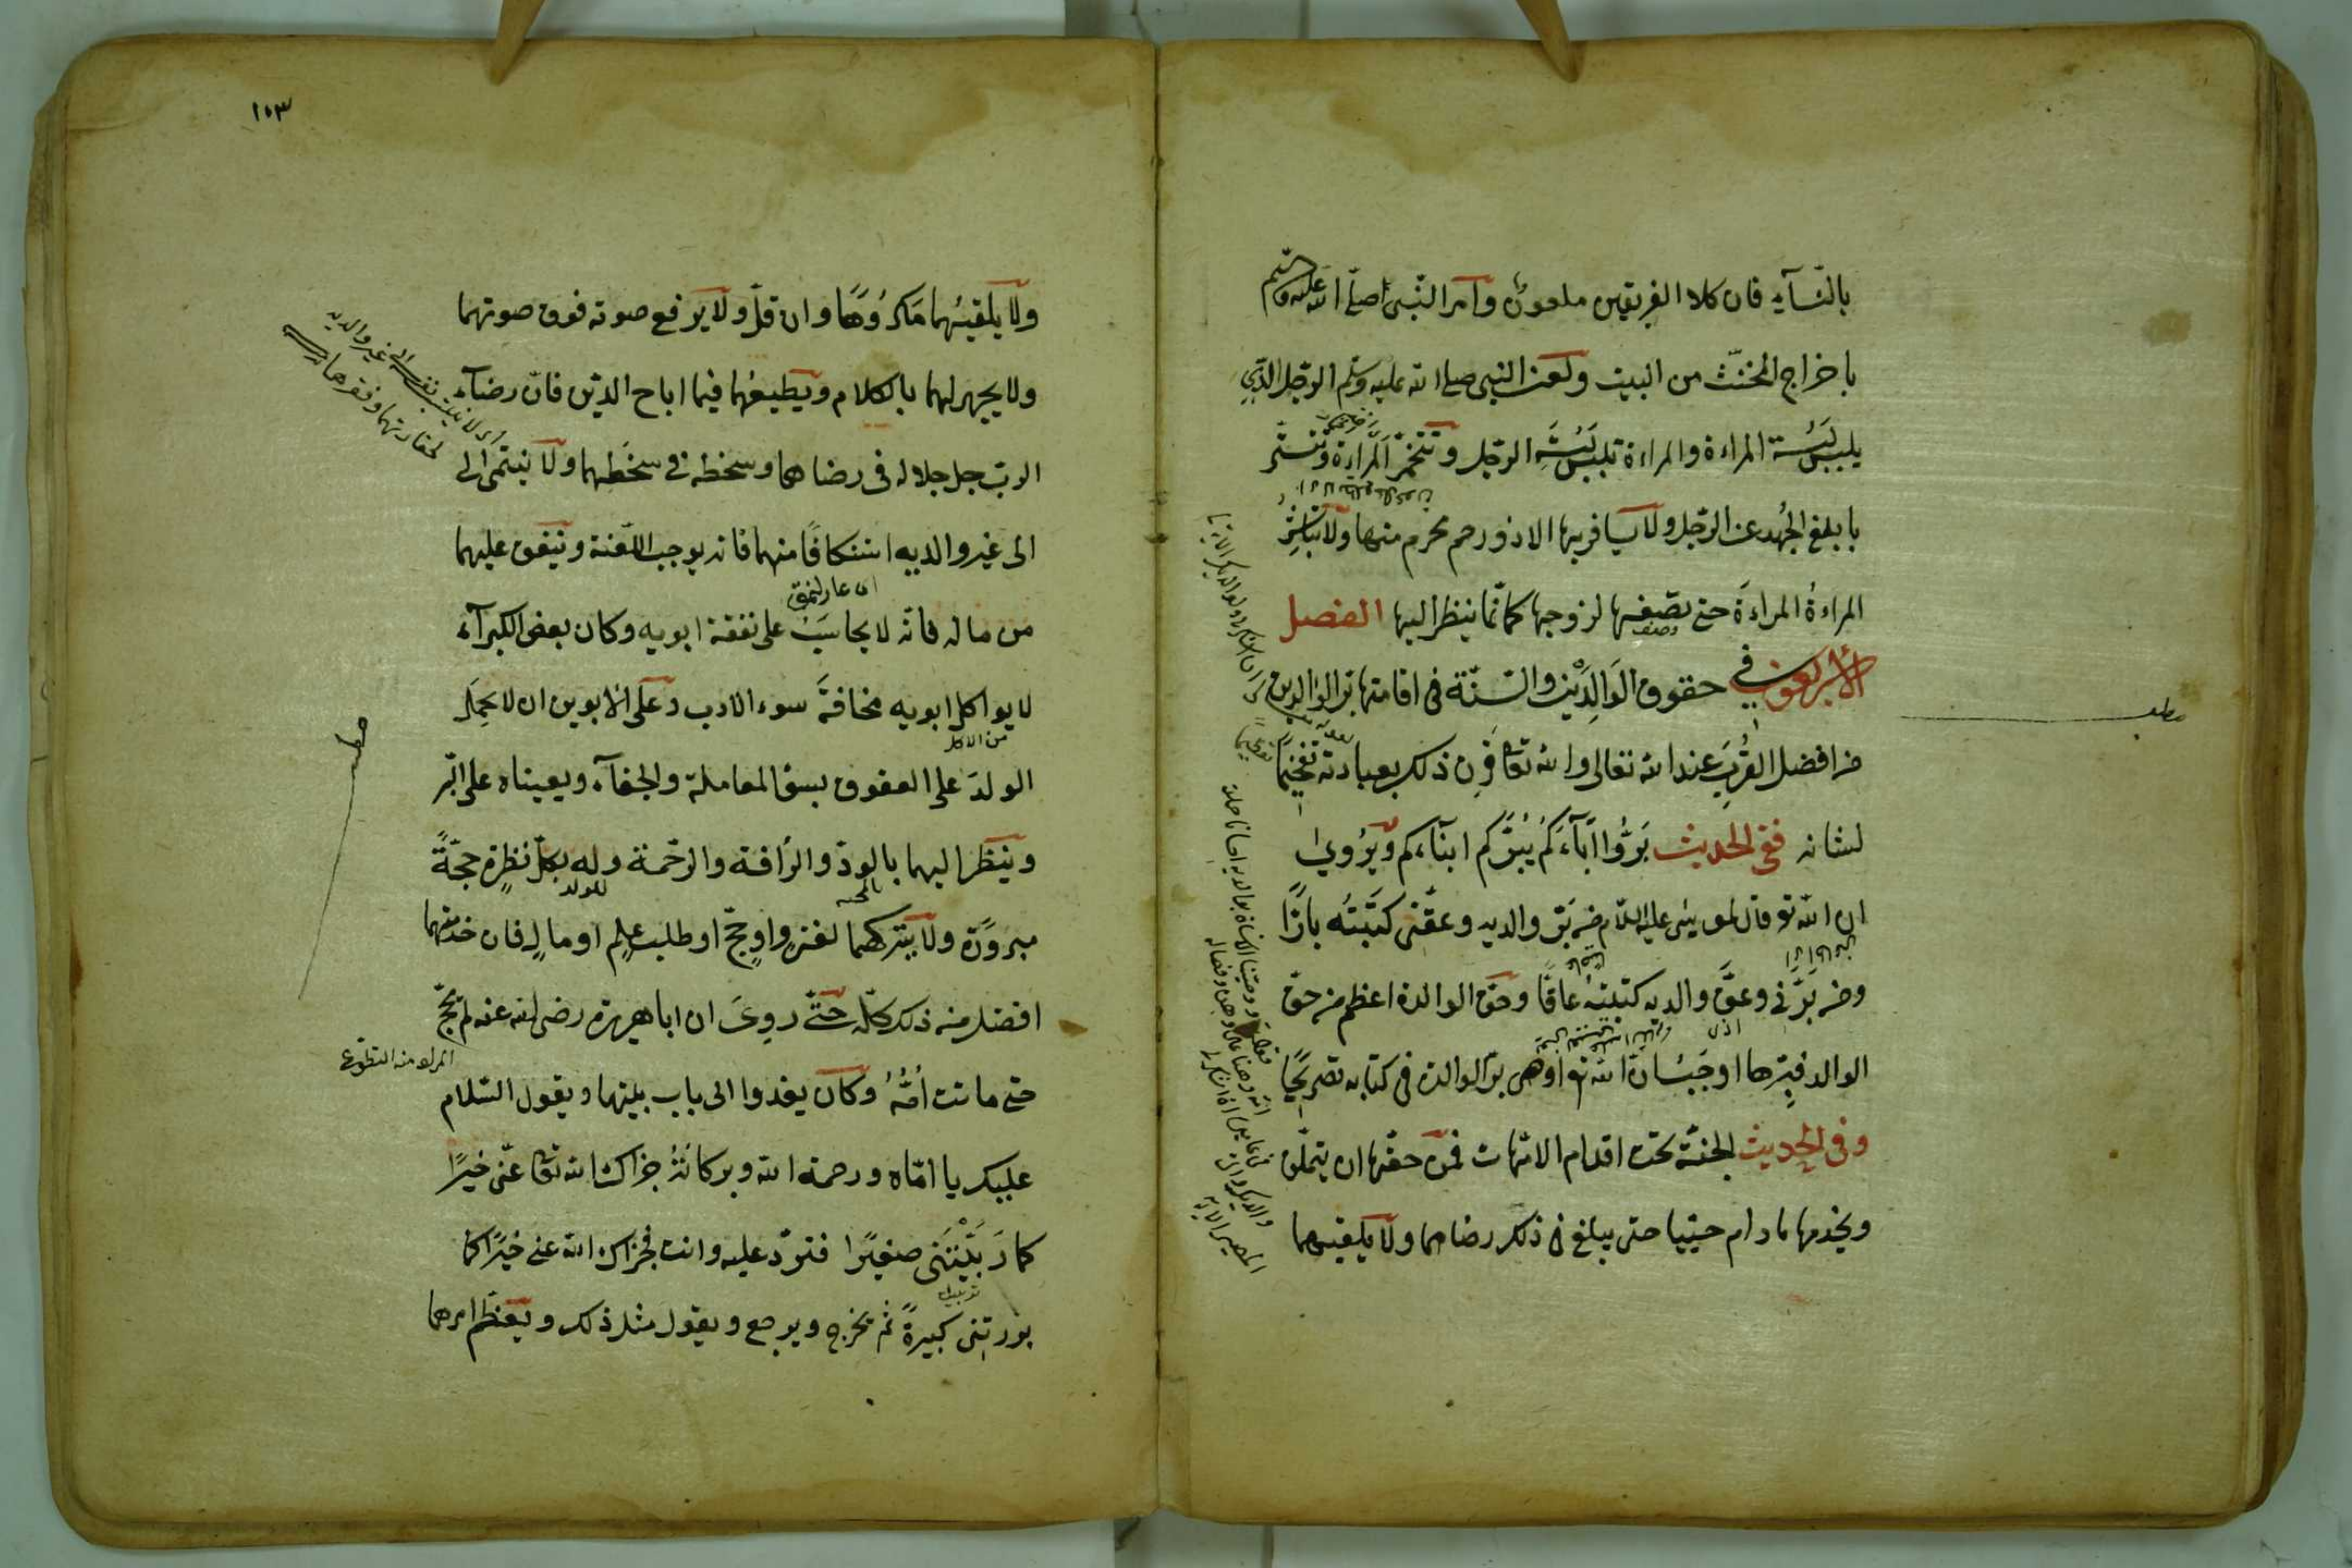 بالنّسآء فان كلا الفريقين ملعون وامر النّبي صلّى الله عليه وسلم
باخراج المخنّث من البيت ولعن النبي صلى الله عليه وسلّم الرّجل الّذي
يلبس لبسة المراءة والمراءة تلبس لبسة الرّجل وتتخمّر المراءة وتتستّر
ما بلغ الجُهد عن الرّجل ولا يسافر بها الا ذو رحم محرم منها ولا تباشر
المراءةُ المراءةَ حتى تصفها لزوجها كانما ينظر اليها الفصل
وصف
الأربعون في حقوق الوَالِدَيْن والسّنّة في اقامتها برّ الوالدين
مطلب
من افضل القُرَب عند الله تعالى والله تعا قرن ذلك بعبادته تفخيمًا
لشانه ففى الحديث بَرُّوا اٰبآءَكُم يُبرّكم ابنآءكم ويُروى
ان الله تع قال لموسى عليه السّلام من بَرّ والديه وعقّنى كتبتُه بارًّا
ومن بَرَّنى وعقَّ والديه كتبتهُ عاقًّا وحق الوالدة اعظم من حقّ
الوالد فبِرّها اوجَبُ لان الله تع اوصى برّ الوالدة في كتابه تصريحًا
وفى الحديث الجنّة تحت اقدام الامّهات فمن حقّها ان يتملّق
ويخدمها مادام حيّيا حتى يبلغ في ذلك رضاهما ولا يلقيهما
١٥٣
ولا يلقيهُما مَكرُوهًا وان قلّ ولا يرفع صوته فوق صوتهما
ولا يجهر لهما بالكلام ويطيعُهما فيما اباح الدّين فانّ رضآء
اى لا ينسب نفسه الى غير والديه
لحقارتهما وفقرهما
الربّ جل جلاله فى رضاهما وسخطه فى سخَطهما ولا ينتمى الى
الى غير والديه استنكافًا منهما فانه يوجب اللّعنة وينفق عليهما
من ماله فانّه لا يحاسَب على نفقة ابويه وكان بعض الكبرآء
لا يواكل ابويه مخافةَ سوء الادب وعلى الابوين ان لا يحمِلَ
من الاكل
مطلب
الولدَ على العقوق بسوء المعاملة والجفآء ويعيناه على البّر
وينظر اليهما بالودّ والرأفة والرّحمة وله بكلّ نظرةٍ حجّةً
للولد
مبرورة ولا يتركهما لغزو او حجّ او طلب علم او مالٍ فان خدمتهما
افضل من ذلك كلّه حتّى روىَ ان ابا هريرة رضى الله عنه لم يحجّ
المراد منه التطوّع
حتى ماتت اُمّهُ وكان يغدوا الى باب بيتها ويقول السّلام
عليك يا امّاه ورحمة الله وبركاتهُ جزاك الله تعا عنّى خيرًا
كما ربّيْتَنى صغيرًا فتردّ عليه وانت فجزاك الله عنى خيرًا كما
بررتنى كبيرةً ثم يخرج ويرجع ويقول مثل ذلك ويعظّم امرهما